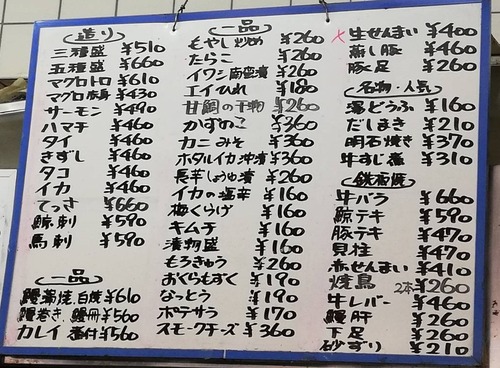 造り
三種盛 ¥510
五種盛 ¥660
マグロトロ ¥610
マグロ赤身 ¥430
サーモン ¥490
ハマチ ¥460
タイ ¥460
きずし ¥460
タコ ¥460
イカ ¥460
てっさ ¥660
鯨刺 ¥590
馬刺 ¥590
一品
鰻蒲焼、白焼 ¥610
鰻巻き、鰻冊 ¥560
カレイ 番付 ¥560
一品
もやし炒め ¥260
たらこ ¥260
イワシ南蛮漬 ¥260
エイひれ ¥180
甘鯛の干物 ¥260
かずのこ ¥360
カニみそ ¥360
ホタルイカ沖漬 ¥360
長芋しょうゆ漬 ¥260
イカの塩辛 ¥160
梅くらげ ¥160
キムチ ¥160
漬物盛 ¥160
もろきゅう ¥260
おくらもずく ¥190
なっとう ¥190
ポテサラ ¥170
スモークチーズ ¥360
× 生せんまい ¥400
蒸し豚 ¥460
豚足 ¥260
名物・人気
湯どうふ ¥160
だしまき ¥210
明石焼き ¥370
牛すじ煮 ¥310
鉄板焼
牛バラ ¥660
鯨テキ ¥590
豚テキ ¥470
貝柱 ¥470
赤せんまい ¥410
焼鳥 2本 ¥260
牛レバー ¥460
鰻肝 ¥260
下足 ¥260
砂ずり ¥210